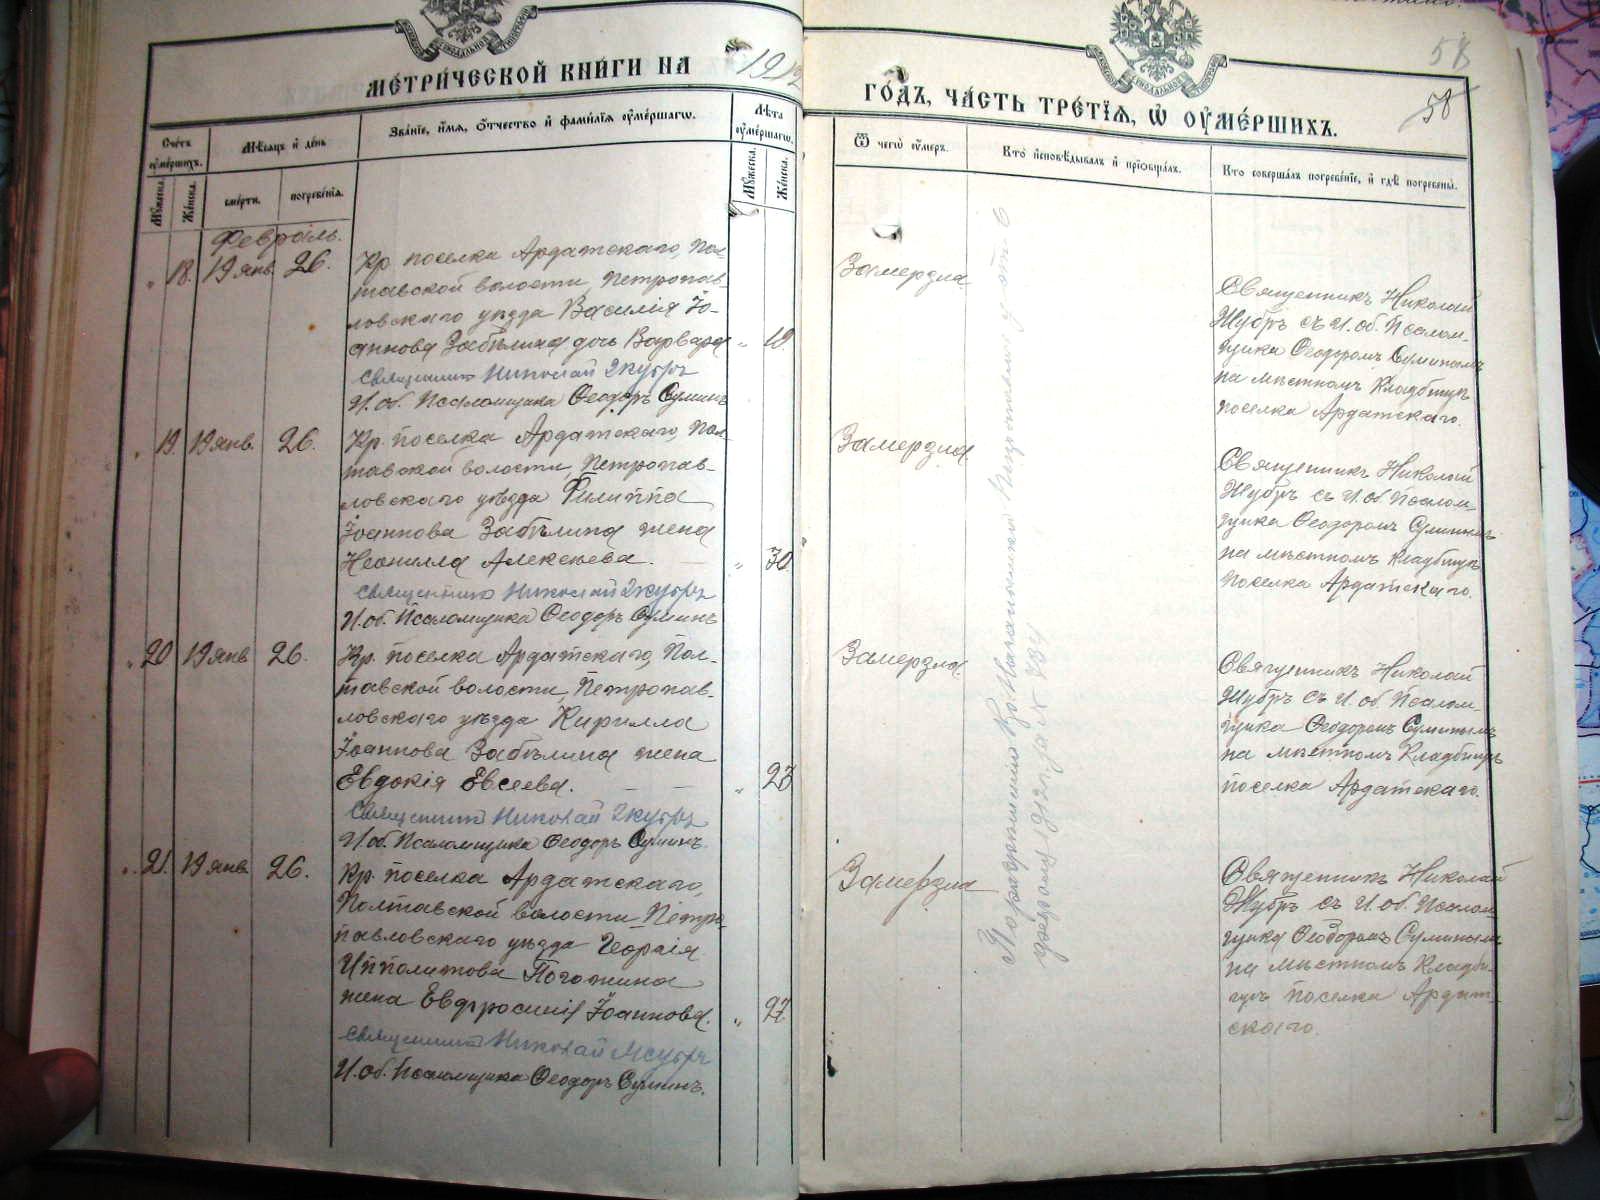 МЕТРИЧЕСКОЙ КНИГИ НА 1912
ГОДЪ, ЧАСТЬ ТРЕТІЯ, Ѡ ОУМЕРШИХЪ.
58
58
Счетъ оумершихъ.
Мѣсяцъ и день
Званіе, имя, отчество и фамилія оумершагѡ.
Лѣта оумершагѡ.
Мужеска.
Женска.
смерти.
погребенія.
Мужеска.
Женска.
Ѿ чегѡ оумеръ.
Кто исповѣдывалъ и пріобщалъ.
Кто совершалъ погребеніе, и гдѣ погребены.
Февраль.
18. 19 янв. 26.
Кр. поселка Ардатскаго, Пол-
тавской волости, Петропав-
ловскаго уѣзда Василія Іо-
аннова Забѣлина дочь Варвара
Священникъ Николай Жубръ
И. об. Псаломщика Ѳеодоръ Суминъ
Замерзла
Священникъ Николай
Жубръ съ И. об. Псалом-
щика Ѳеодоромъ Суминымъ
на мѣстномъ кладбищѣ
поселка Ардатскаго.
19. 19 янв. 26.
Кр. поселка Ардатскаго, Пол-
тавской волости, Петропав-
ловскаго уѣзда Филиппа
Іоаннова Забѣлина жена
Неонилла Алексѣева. 30.
Священникъ Николай Жубръ
И. об. Псаломщика Ѳеодоръ Суминъ
Замерзла.
Священникъ Николай
Жубръ съ И. об. Псалом-
щика Ѳеодоромъ Суминымъ
на мѣстномъ кладбищѣ
поселка Ардатскаго.
20 19 янв. 26.
Кр. поселка Ардатскаго, Пол-
тавской волости, Петропав-
ловскаго уѣзда Кирилла
Іоаннова Забѣлина жена
Евдокія Евсеева. 23
Священникъ Николай Жубръ
И. об. Псаломщика Ѳеодоръ Суминъ.
Замерзла.
Священникъ Николай
Жубръ съ И. об. Псалом-
щика Ѳеодоромъ Суминымъ
на мѣстномъ кладбищѣ
поселка Ардатскаго.
21. 19 янв. 26.
Кр. поселка Ардатскаго,
Полтавской волости Петро-
павловскаго уѣзда Георгія
Ипполитова
жена Евфросинія Іоаннова. 27.
Священникъ Николай Жубръ
И. об. Псаломщика Ѳеодоръ Суминъ.
Замерзла
Священникъ Николай
Жубръ съ И. об. Псалом-
щика Ѳеодоромъ Суминымъ
на мѣстномъ кладби-
щѣ поселка Ардат-
скаго.